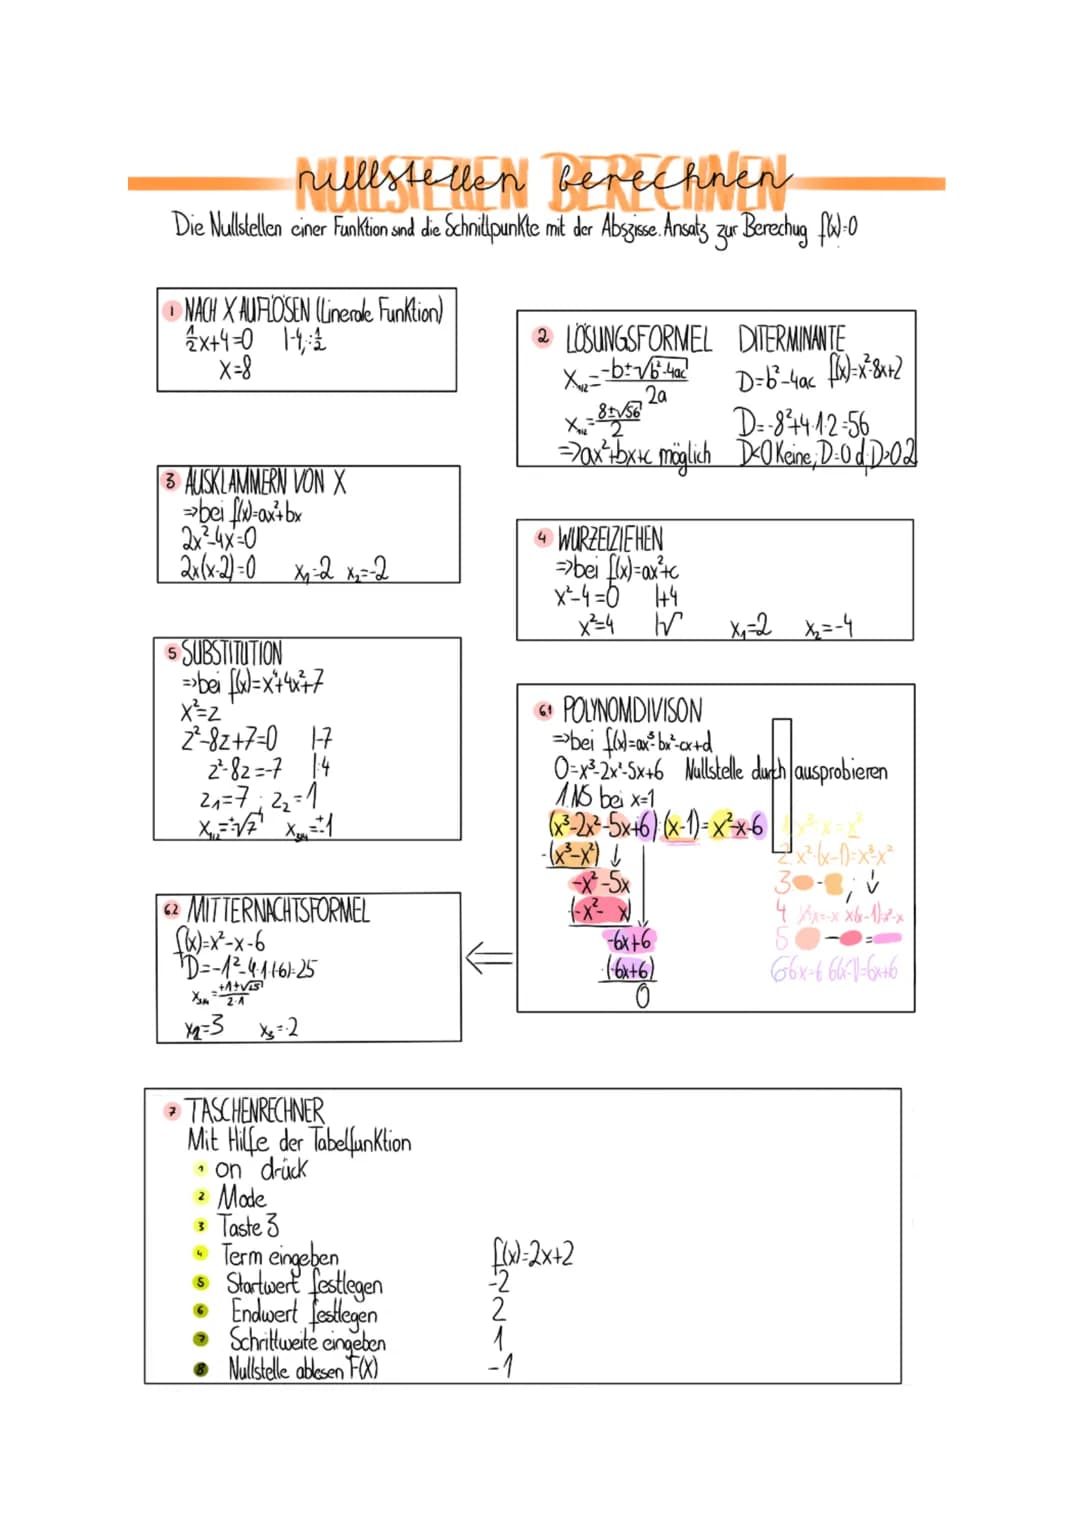 nullstellen berechnen
NULLSTELLEN BERECHNEN
Die Nullstellen einer Funktion sind die Schnittpunkte mit der Abszisse. Ansatz zur Berechug f(x)=0
1 NACH X AUFLÖSEN (Linerale Funktion)
½x+4=0 |-4,:½
x=8
2 LÖSUNGSFORMEL DITERMINANTE
X₁,₂=-b±√b²-4ac / 2a D=b²-4ac f(x)=x²-8x+2
X₁,₂=8±√56 / 2 D=-8²+4·1·2=56
=>ax²+bx+c möglich D<0 Keine; D=0 d; D>0 2
3 AUSKLAMMERN VON X
=>bei f(x)=ax²+bx
2x²-4x=0
2x(x-2)=0 x₁=2 x₂=-2
4 WURZELZIEHEN
=>bei f(x)=ax²+c
x²-4=0 |+4
x²=4 |√ x₁=2 x₂=-4
5 SUBSTITUTION
=>bei f(x)=x⁴+4x²+7
x²=z
z²-8z+7=0 |-7
z²-8z=-7 |:4
z₁=7; z₂=1
x₁,₂=±√7 x₃,₄=±1
6.1 POLYNOMDIVISON
=>bei f(x)=ax³-bx²-cx+d
0=x³-2x²-5x+6 Nullstelle durch ausprobieren
1.NS bei x=1
(x³-2x²-5x+6):(x-1)=x²-x-6 1 x³:x=x²
-(x³-x²) ↓ 2 x²·(x-1)=x³-x²
-x²-5x 3 - ; ↓
(-x²- x) 4
-6x+6 5 - =
(-6x+6) 6
0
6.2 MITTERNACHTSFORMEL
f(x)=x²-x-6
D=-1²-4·1·(-6)=25
x₃,₄=+1±√25 / 2·1
x₂=3 x₃=-2
7 TASCHENRECHNER
Mit Hilfe der Tabelfunktion
1 on drück
2 Mode
3 Taste 3
4 Term eingeben f(x)=2x+2
5 Startwert festlegen -2
6 Endwert festlegen 2
7 Schrittweite eingeben 1
8 Nullstelle ablesen F(X) -1